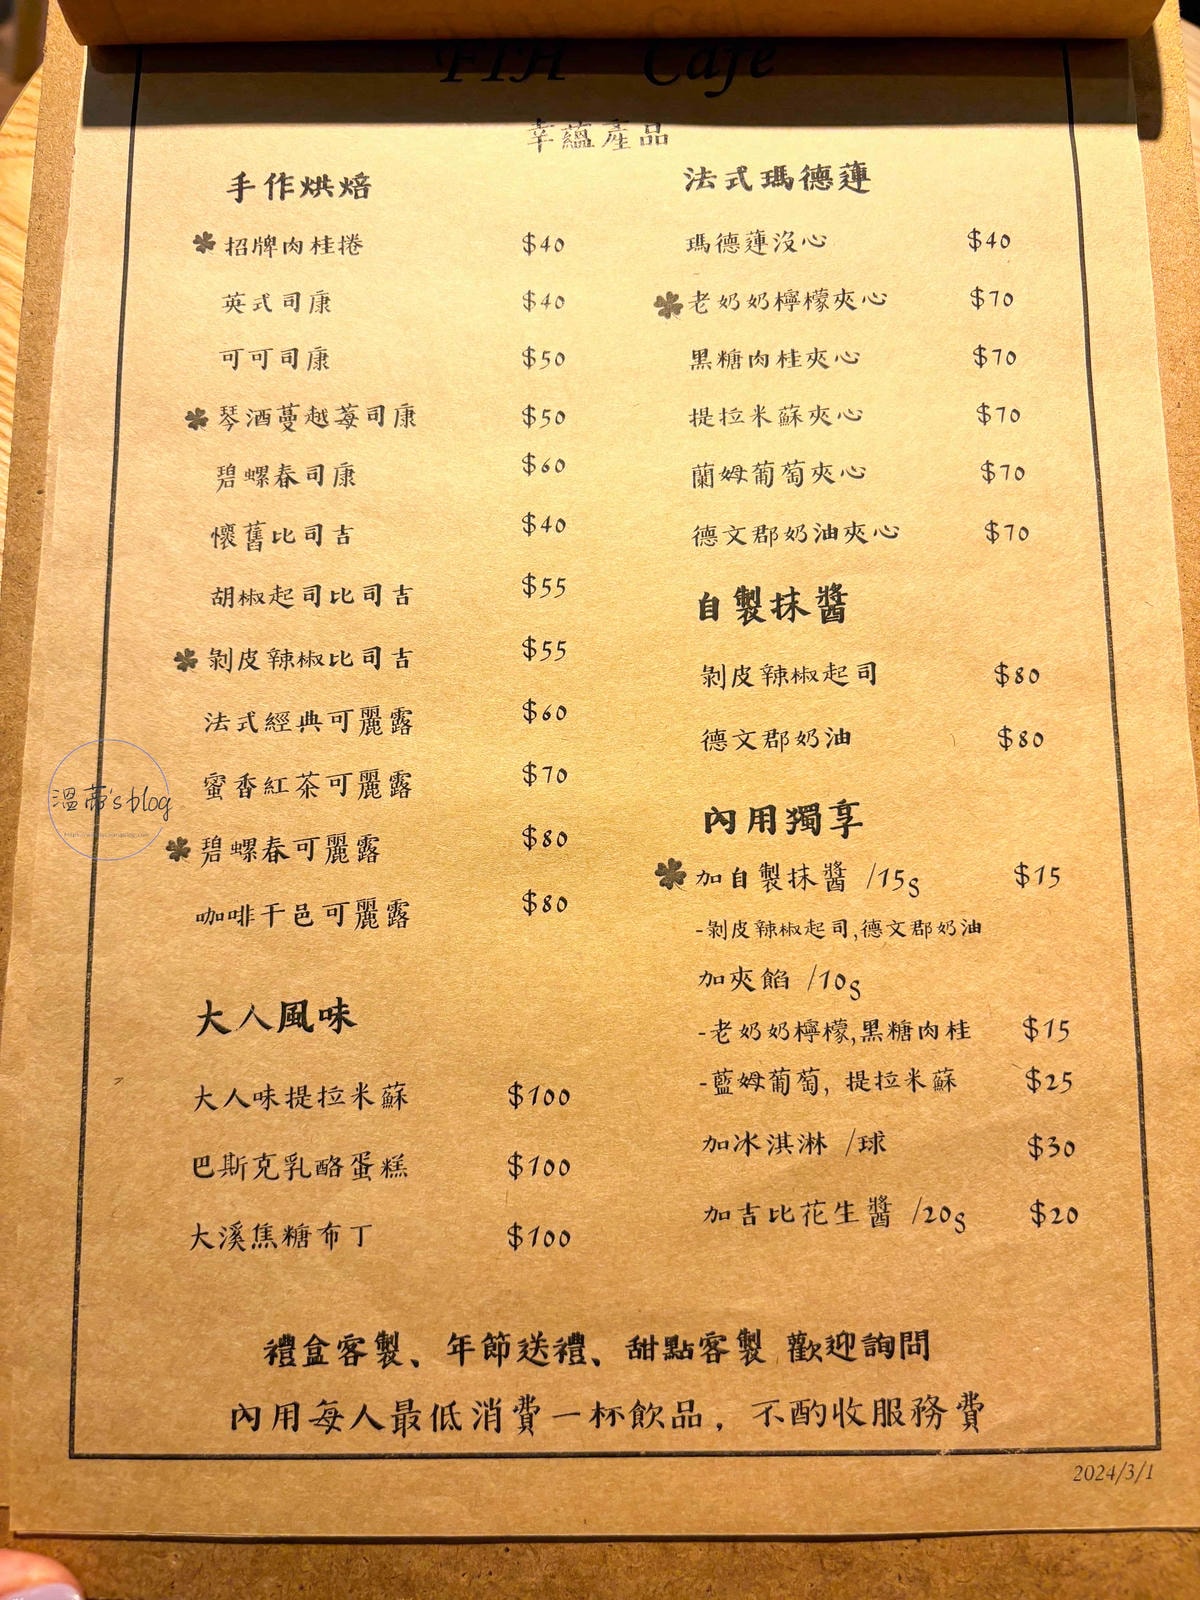 FIH Cafe
幸蘊產品
手作烘焙
招牌肉桂捲 $40
英式司康 $40
可可司康 $50
琴酒蔓越莓司康 $50
碧螺春司康 $60
懷舊比司吉 $40
胡椒起司比司吉 $55
剝皮辣椒比司吉 $55
法式經典可麗露 $60
蜜香紅茶可麗露 $70
碧螺春可麗露 $80
咖啡干邑可麗露 $80
大人風味
大人味提拉米蘇 $100
巴斯克乳酪蛋糕 $100
大溪焦糖布丁 $100
法式瑪德蓮
瑪德蓮沒心 $40
老奶奶檸檬夾心 $70
黑糖肉桂夾心 $70
提拉米蘇夾心 $70
蘭姆葡萄夾心 $70
德文郡奶油夾心 $70
自製抹醬
剝皮辣椒起司 $80
德文郡奶油 $80
內用獨享
加自製抹醬 /15g $15
-剝皮辣椒起司,德文郡奶油
加夾餡 /10g
-老奶奶檸檬,黑糖肉桂 $15
-藍姆葡萄, 提拉米蘇 $25
加冰淇淋 /球 $30
加吉比花生醬 /20g $20
禮盒客製、年節送禮、甜點客製 歡迎詢問
內用每人最低消費一杯飲品, 不酌收服務費
2024/3/1
溫蒂's blog